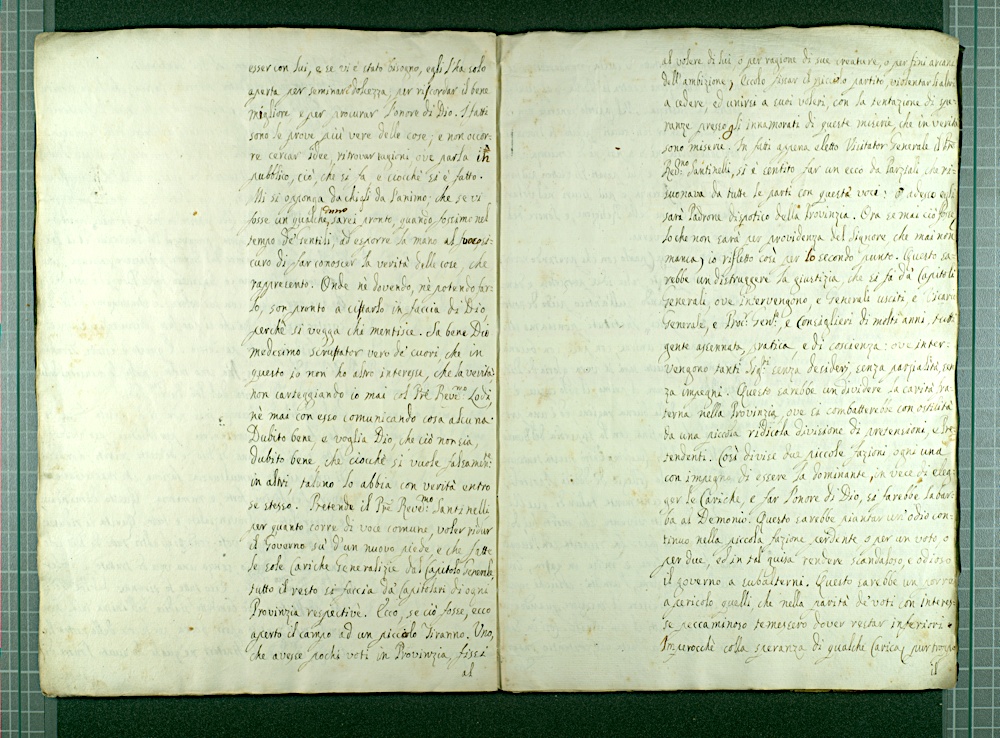 esser con lui, e se vi è stato bisogno, egli l'ha solo
aperta per seminar dolcezza, per ricordar il bene
migliore e per procurar l'onore di Dio. I fatti
sono le prove più vere delle cose; e non occor-
re cercar idee, ritrovar ragioni ove parla in
publico, ciò, che si fa e ciocchè si è fatto.
Mi si opponga da chi gli dà l'animo; che se vi
fosse un qualche, sarei pronto, quando fossimo nel
tempo de' gentili, ad esporre la mano al fuoco si-
curo di far conoscer la verità delle cose, che
rappresento. Onde nè dovendo, nè potendo far-
lo, son pronto a citarlo in faccia di Dio
perchè si vegga chi mentisce. Sa bene Dio
medesimo scrutator vero de' cuori, che in
questo io non ho altro interesse, che la verità
non carteggiando io mai col Prē Revē.mo Lodi,
nè mai con esso comunicando cosa alcuna.
Dubito bene, e voglia Dio, che ciò non sia,
dubito bene, che ciocchè si vuole falsamen.te
in altri taluno lo abbia con verità entro
se stesso. Pretende il Prē Revēd.mo Santinelli
per quanto corre di voce comune, voler ridur
il Governo su' d'un nuovo piede, e che fatte
le sole Cariche Generalizie dal Capitolo Generale,
tutto il resto si faccia da' Capitolari di ogni
Provinzia respettive. Ecco, se ciò fosse, ecco
aperto il campo ad un piccolo Tiranno. Uno,
che avesse pochi voti in Provinzia, fissi
al
al volere di lui o per ragione di sue creature, o per fini arcani
dell'ambizione; Eccolo forzar il piccolo partito, violentar li altri
a cedere, ed unirsi a suoi voleri, con la tentazione di spe-
ranze presso gli innamorati di queste miserie, che in verità
sono miserie. In fatti appena eletto Visitator Generale il Prē
Red.mo Santinelli, si è sentito far un ecco da Parziali che ri-
suonava da tutte le parti con questa voce: O adesso egli
sarà Padrone dispotico della Provinzia. Ora se mai ciò fosse
lo che non sarà per providenza del Signore, che mai non
manca; io rifletto così per lo secondo punto. Questo sa-
rebbe un distruggere la giustizia, che si fa da' Capitoli
Generali, ove intervengono, e Generali usciti e Vicario
Generale, e Proc.r Gen.le, e Consiglieri di molti anni, tutti
gente assennata pratica e di coscienza: ove inter-
vengono tanti senza desiderj, senza parzialità, sen-
za impegni. Questo sarebbe un dividere la carità fra-
terna nella Provinzia, ove si combatterebbe con ostilità
da una piccola ridicola divisione di pretensioni, e Pre-
tendenti. Così divise due piccole fazioni ogni una
con impegno di essere la dominante, in vece di eleg-
ger le Cariche, e far l'onore di Dio, si farebbe la bar-
ba al Demonio. Questo sarebbe piantar un'odio con-
tinuo nella piccola fazione perdente o per un voto, o
per due, ed in tal guisa rendere scandaloso, e odioso
il governo a subalterni. Questo sarebbe un porre
a pericolo quelli, che nella parità de' voti con interes-
se peccaminoso temessero dover restar inferiori.
Imperocchè colla speranza di qualche Carica, pur troppo
il